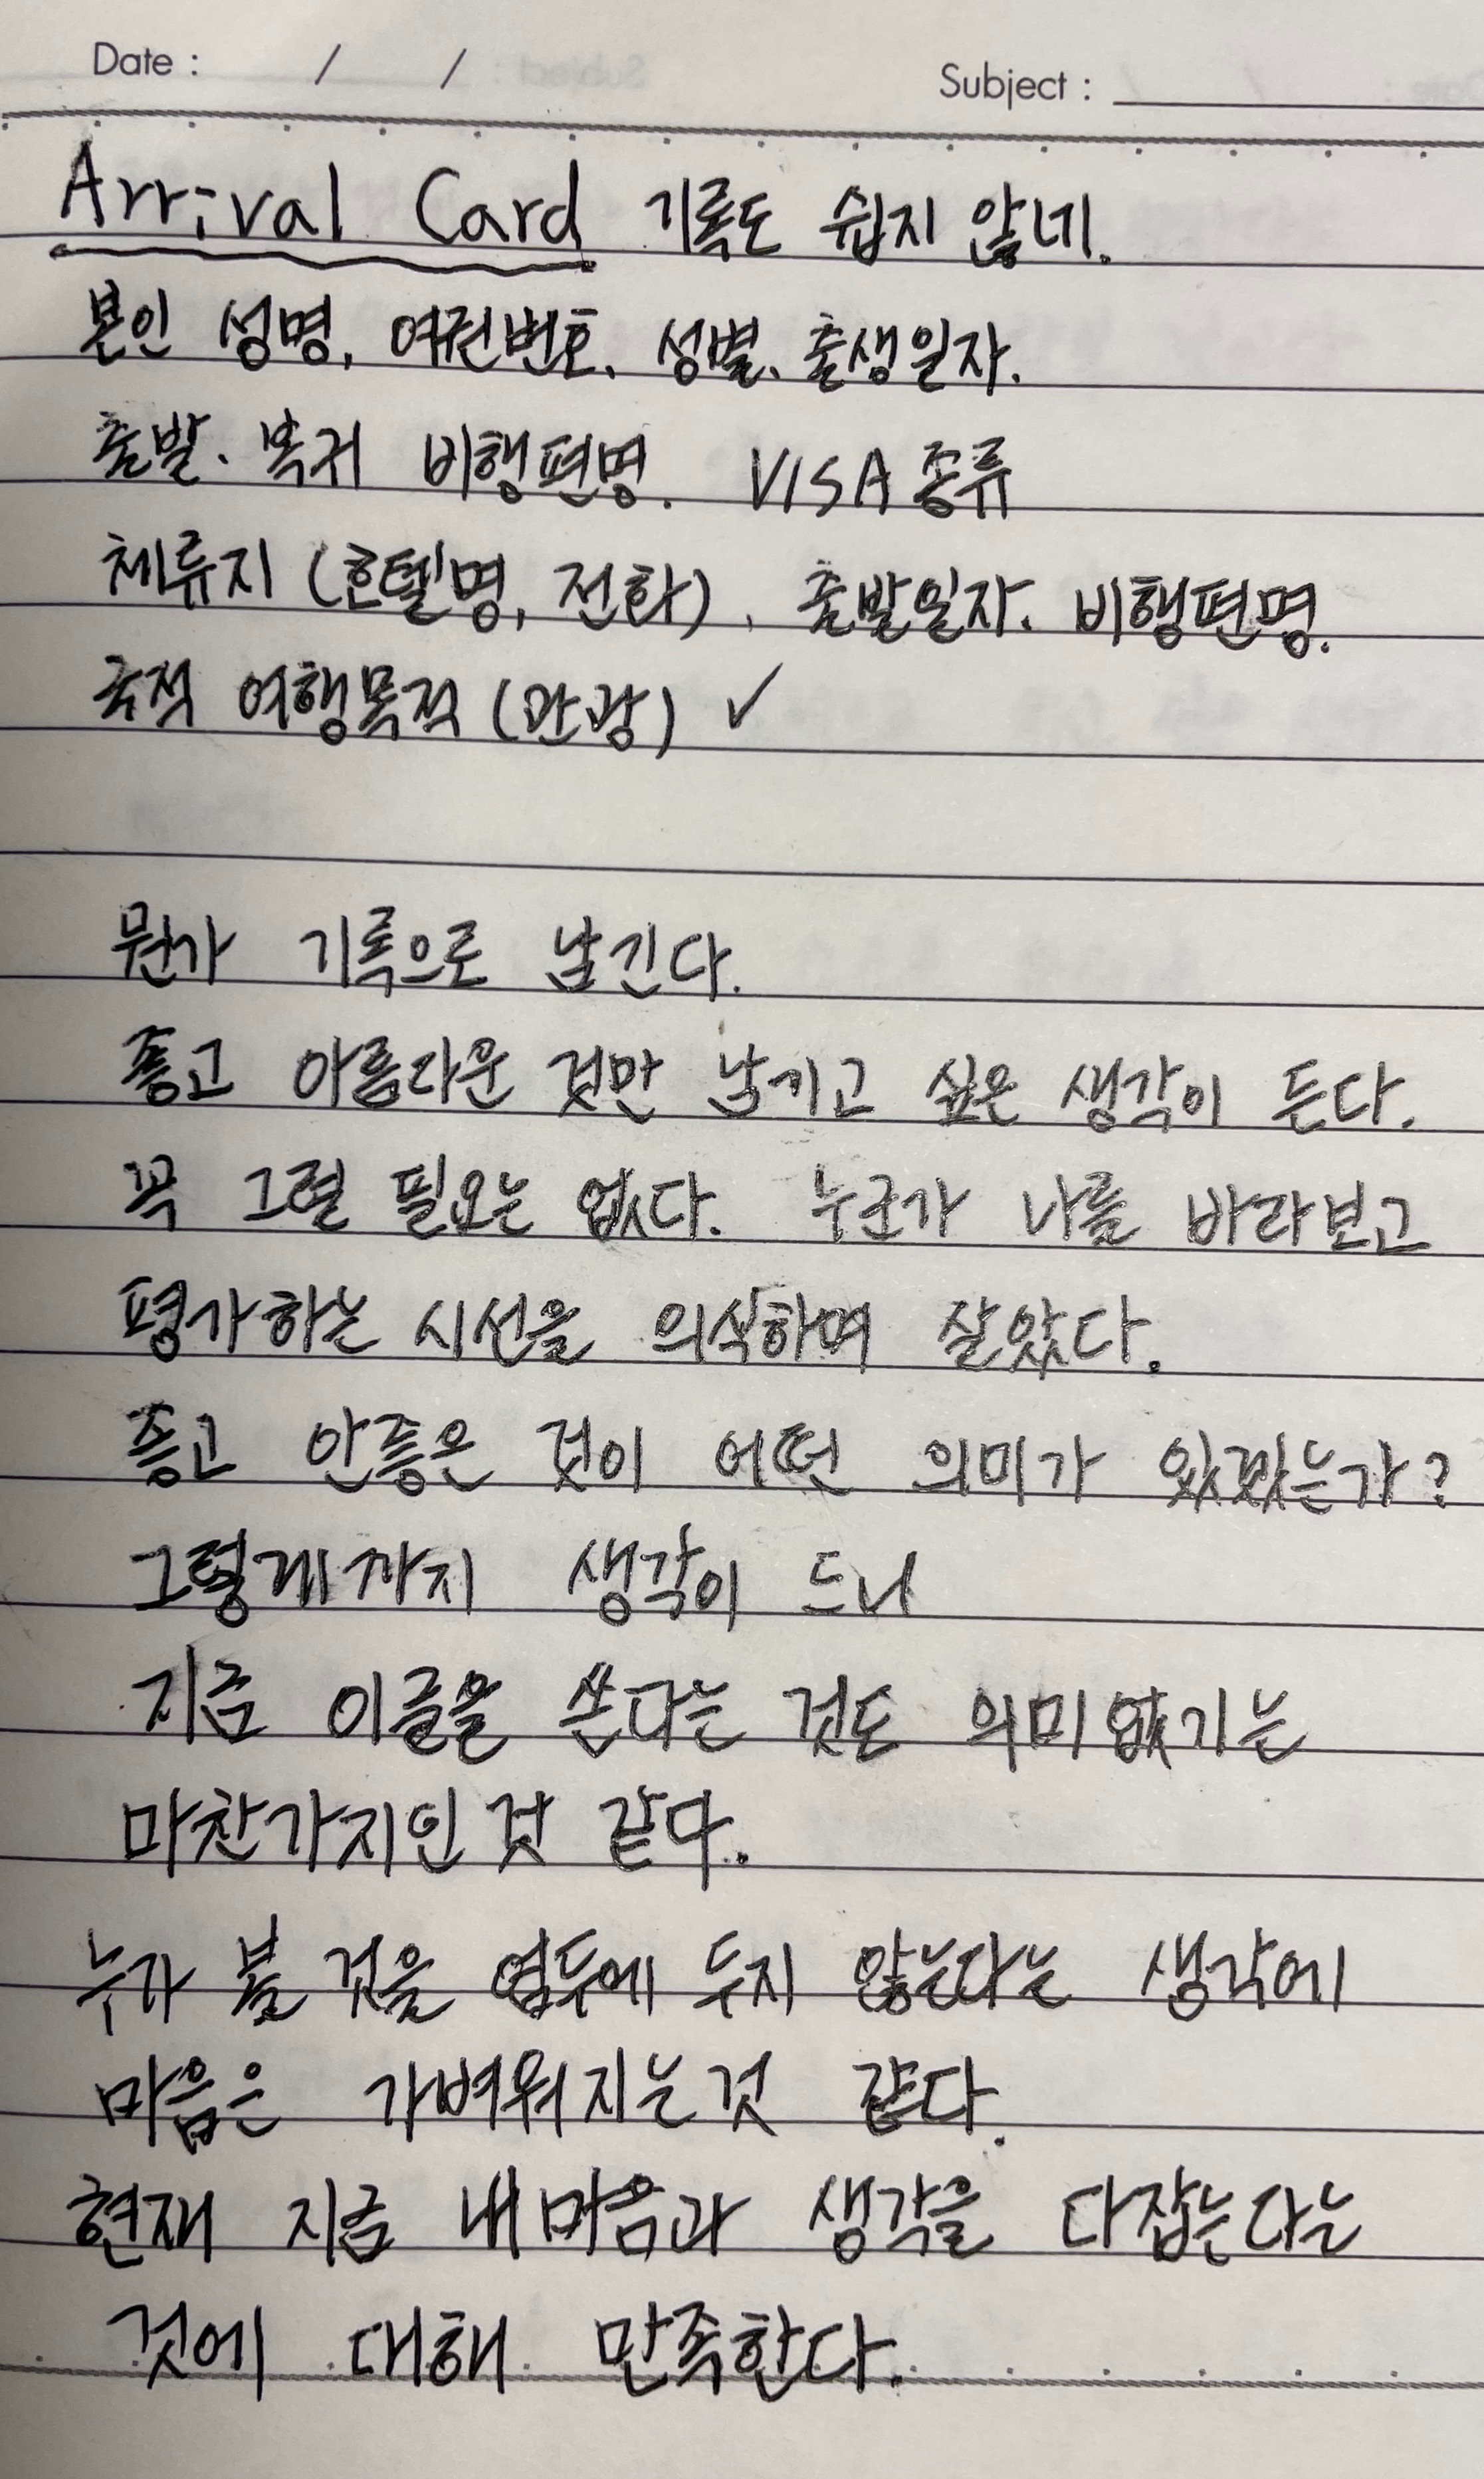 Date : / /
Subject :
Arrival Card 기록도 쉽지 않네.
본인 성명, 여권번호. 성별. 출생일자.
출발. 복귀 비행편명. VISA 종류
체류지 (호텔명, 전화). 출발일자. 비행편명.
국적 여행목적 (관광) ✓
뭔가 기록으로 남긴다.
좋고 아름다운 것만 남기고 싶은 생각이 든다.
꼭 그럴 필요는 없다. 누군가 나를 바라보고
평가하는 시선을 의식하며 살았다.
좋고 안좋은 것이 어떤 의미가 있겠는가?
그렇게까지 생각이 드니
지금 이글을 쓴다는 것도 의미없기는
마찬가지인 것 같다.
누가 볼 것을 염두에 두지 않는다는 생각에
마음은 가벼워지는것 같다.
현재 지금 내마음과 생각을 다잡는다는
것에 대해 만족한다.